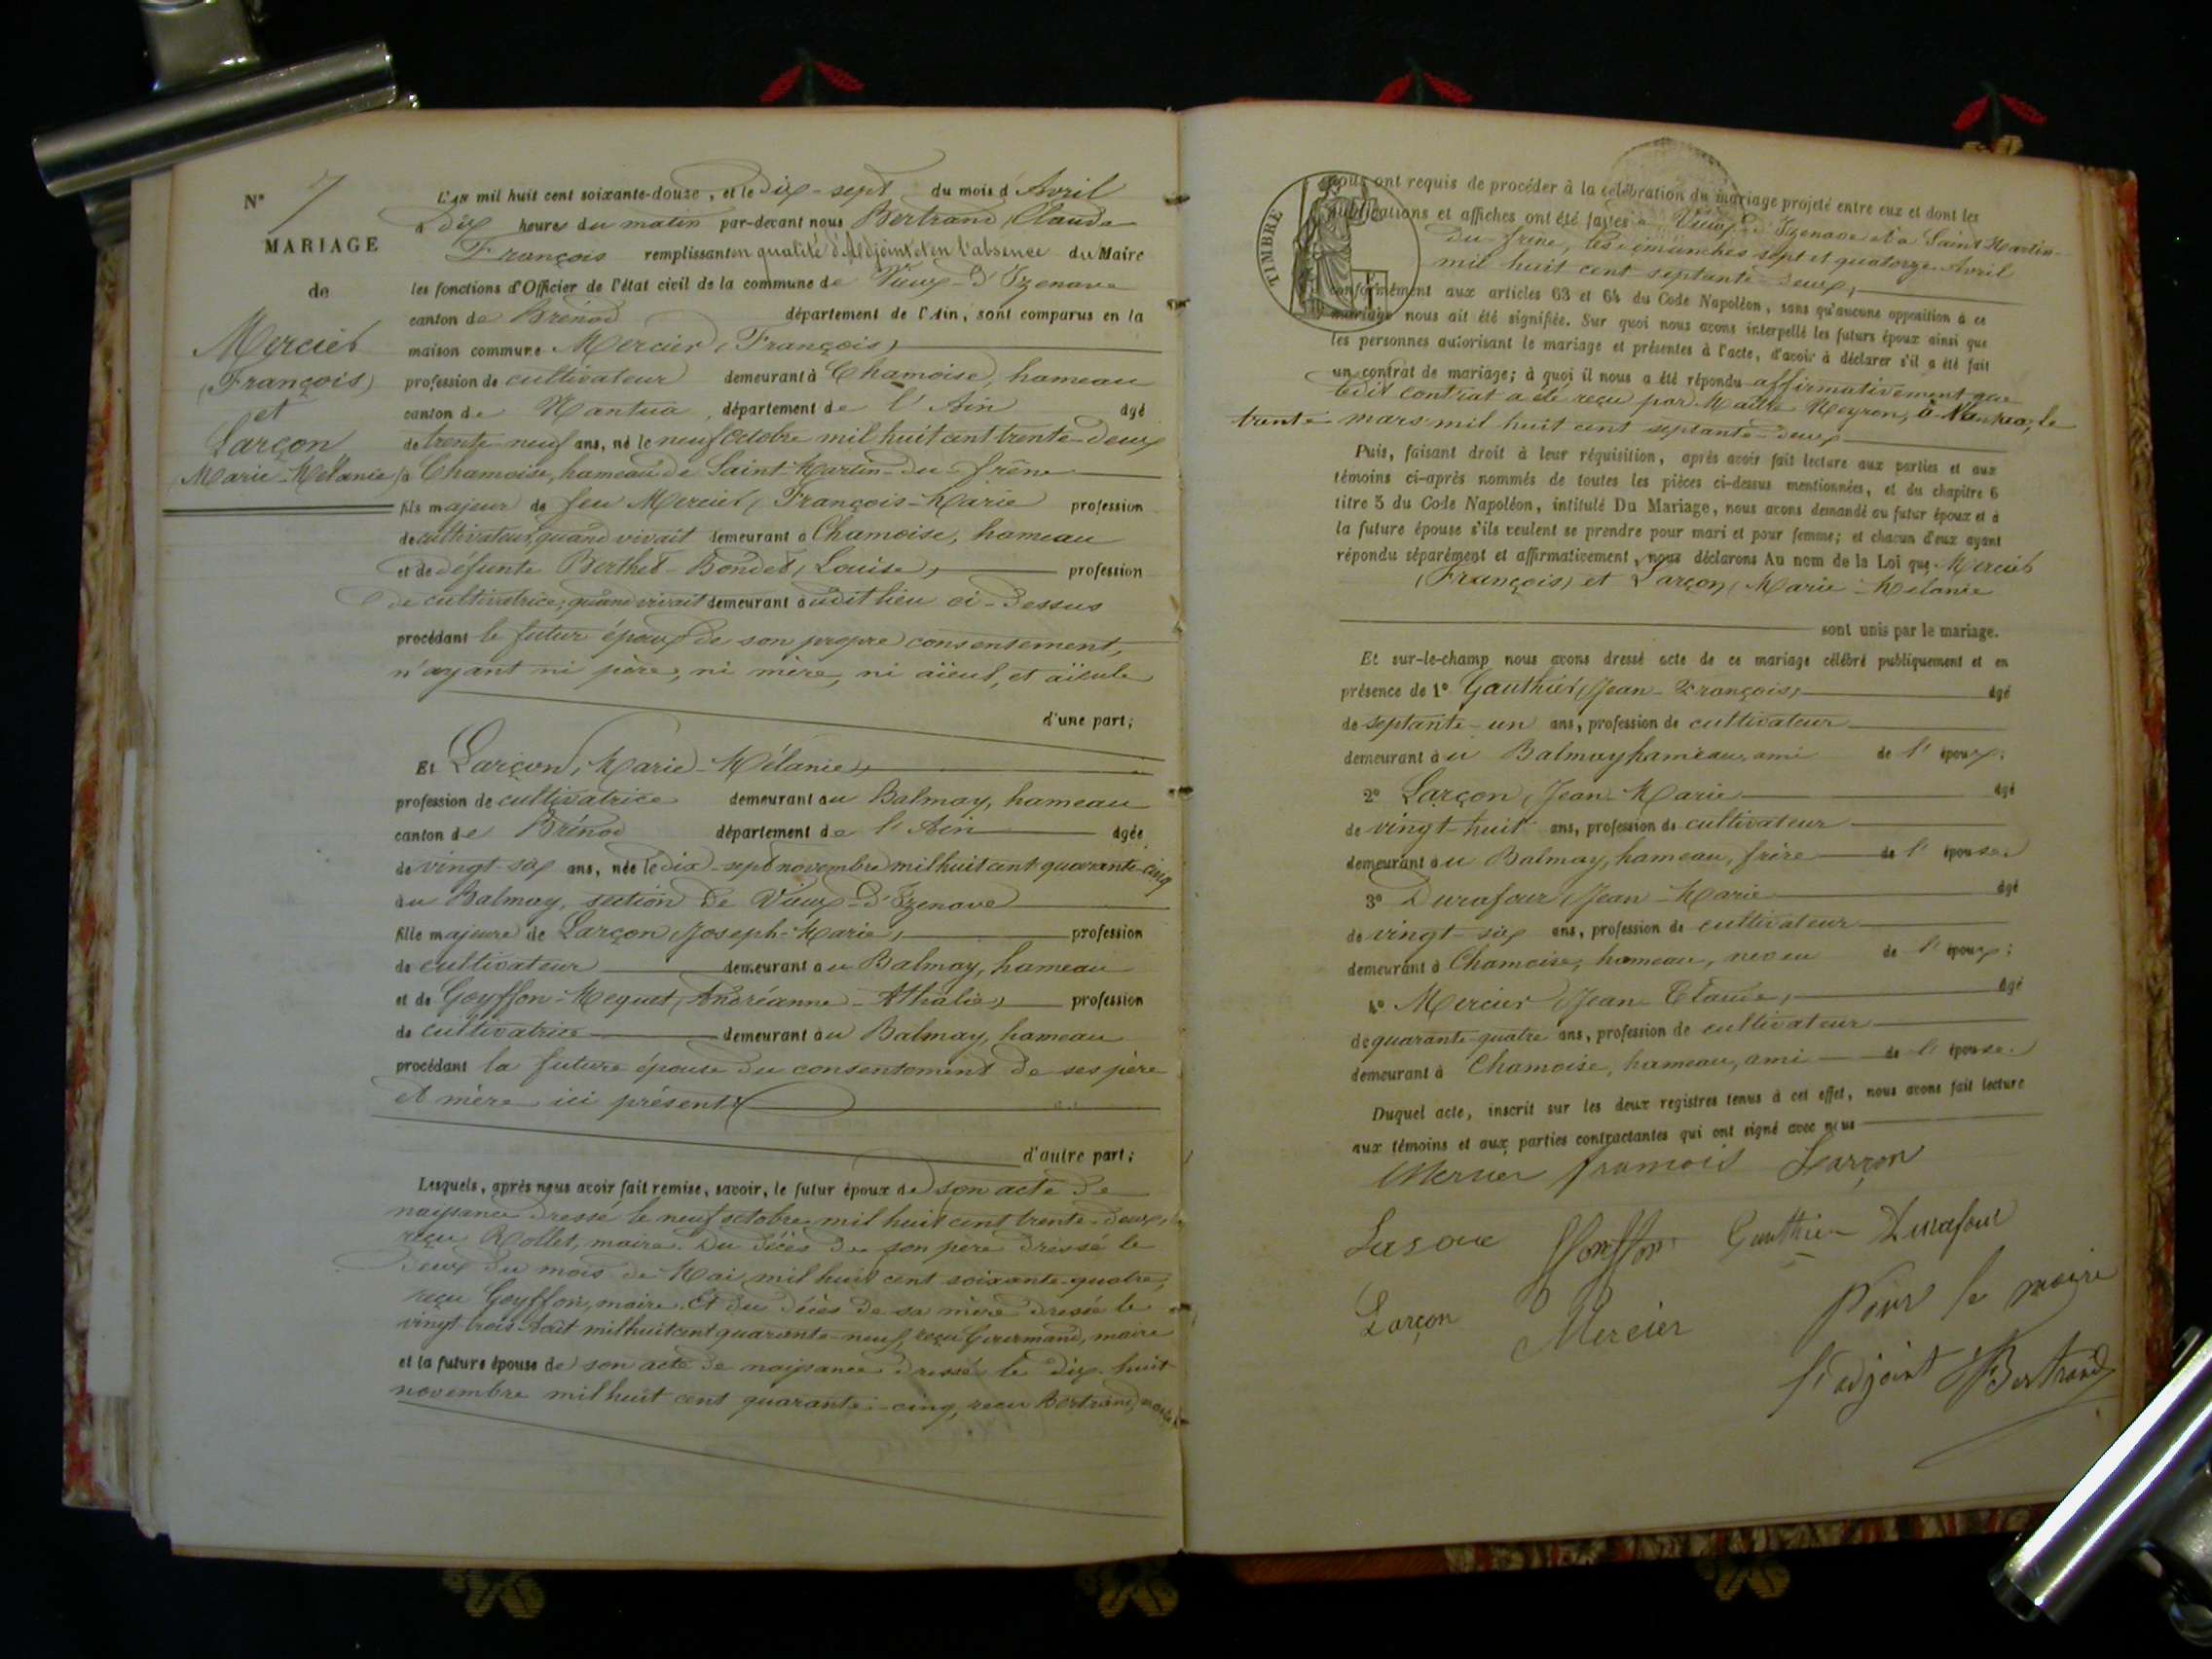 N° 7
MARIAGE
de
Mercier
(François)
et
Larçon
(Marie-Mélanie)
L'AN mil huit cent soixante-douze, et le dix-sept du mois d'Avril
à dix heures du matin par-devant nous Bertrand, Claude
François remplissant en qualité d'Adjoint et en l'absence du Maire
les fonctions d'Officier de l'état civil de la commune de Vieux-d'Izenave
canton de Brénod département de l'Ain, sont comparus en la
maison commune Mercier (François)
profession de cultivateur demeurant à Chamoise, hameau
canton de Nantua, département de l'Ain âgé
de trente-neuf ans, né le neuf Octobre mil huit cent trente-deux
à Chamoise, hameau de Saint-Martin-du-frêne
fils majeur de feu Mercier, François-Marie profession
de cultivateur, quand vivait demeurant à Chamoise, hameau
et de défunte Berthet-Bondet, Louise, profession
de cultivatrice, quand vivait demeurant audit lieu ci-dessus
procédant le futur époux de son propre consentement,
n'ayant ni père, ni mère, ni aïeul, et aïeule
d'une part;
Et Larçon, Marie-Mélanie,
profession de cultivatrice demeurant au Balmay, hameau
canton de Brénod département de l'Ain âgée
de vingt-six ans, née le dix-sept novembre mil huit cent quarante-cinq
au Balmay, section de Vieux-d'Izenave
fille majeure de Larçon, Joseph-Marie, profession
de cultivateur demeurant au Balmay, hameau
et de Goyffon-Mequet, Andréanne-Athalie, profession
de cultivatrice demeurant au Balmay, hameau
procédant la future épouse du consentement de ses père
et mère ici présents
d'autre part;
Lesquels, après nous avoir fait remise, savoir, le futur époux de son acte de
naissance dressé le neuf octobre mil huit cent trente-deux,
reçu Rollet, maire. Du décès de son père dressé le
deux du mois de Mai mil huit cent soixante-quatre,
reçu Goyffon, maire. Et du décès de sa mère dressé le
vingt-trois Août mil huit cent quarante-neuf, reçu maire
et la future épouse de son acte de naissance dressé le dix-huit
novembre mil huit cent quarante-cinq, reçu Bertrand, maire
TIMBRE
nous ont requis de procéder à la célébration du mariage projeté entre eux et dont les
publications et affiches ont été faites à Vieux-d'Izenave et à Saint-Martin-
du-frêne, les dimanches sept et quatorze Avril
mil huit cent septante-deux,
conformément aux articles 63 et 64 du Code Napoléon, sans qu'aucune opposition à ce
mariage nous ait été signifiée. Sur quoi nous avons interpellé les futurs époux ainsi que
les personnes autorisant le mariage et présentes à l'acte, d'avoir à déclarer s'il a été fait
un contrat de mariage; à quoi il nous a été répondu affirmativement que
ledit contrat a été reçu par Maître Neyron, à Nantua, le
trente mars mil huit cent septante-deux
Puis, faisant droit à leur réquisition, après avoir fait lecture aux parties et aux
témoins ci-après nommés de toutes les pièces ci-dessus mentionnées, et du chapitre 6
titre 5 du Code Napoléon, intitulé Du Mariage, nous avons demandé au futur époux et à
la future épouse s'ils veulent se prendre pour mari et pour femme; et chacun d'eux ayant
répondu séparément et affirmativement, nous déclarons Au nom de la Loi que Mercier
(François) et Larçon, Marie-Mélanie
sont unis par le mariage.
Et sur-le-champ nous avons dressé acte de ce mariage célébré publiquement et en
présence de 1° Gauthier, Jean-François, âgé
de septante-un ans, profession de cultivateur
demeurant au Balmay hameau, ami de l'époux;
2° Larçon, Jean-Marie âgé
de vingt-huit ans, profession de cultivateur
demeurant au Balmay, hameau, frère de l'épouse
3° Durafour, Jean-Marie âgé
de vingt-six ans, profession de cultivateur
demeurant à Chamoise, hameau, neveu de l'époux;
4° Mercier, Jean-Claude, âgé
de quarante-quatre ans, profession de cultivateur
demeurant à Chamoise, hameau, ami de l'épouse
Duquel acte, inscrit sur les deux registres tenus à cet effet, nous avons fait lecture
aux témoins et aux parties contractantes qui ont signé avec nous
Mercier francois Larçon
Goyffon Gauthier Durafour
Larçon Mercier Pour le maire
l'adjoint Bertrand